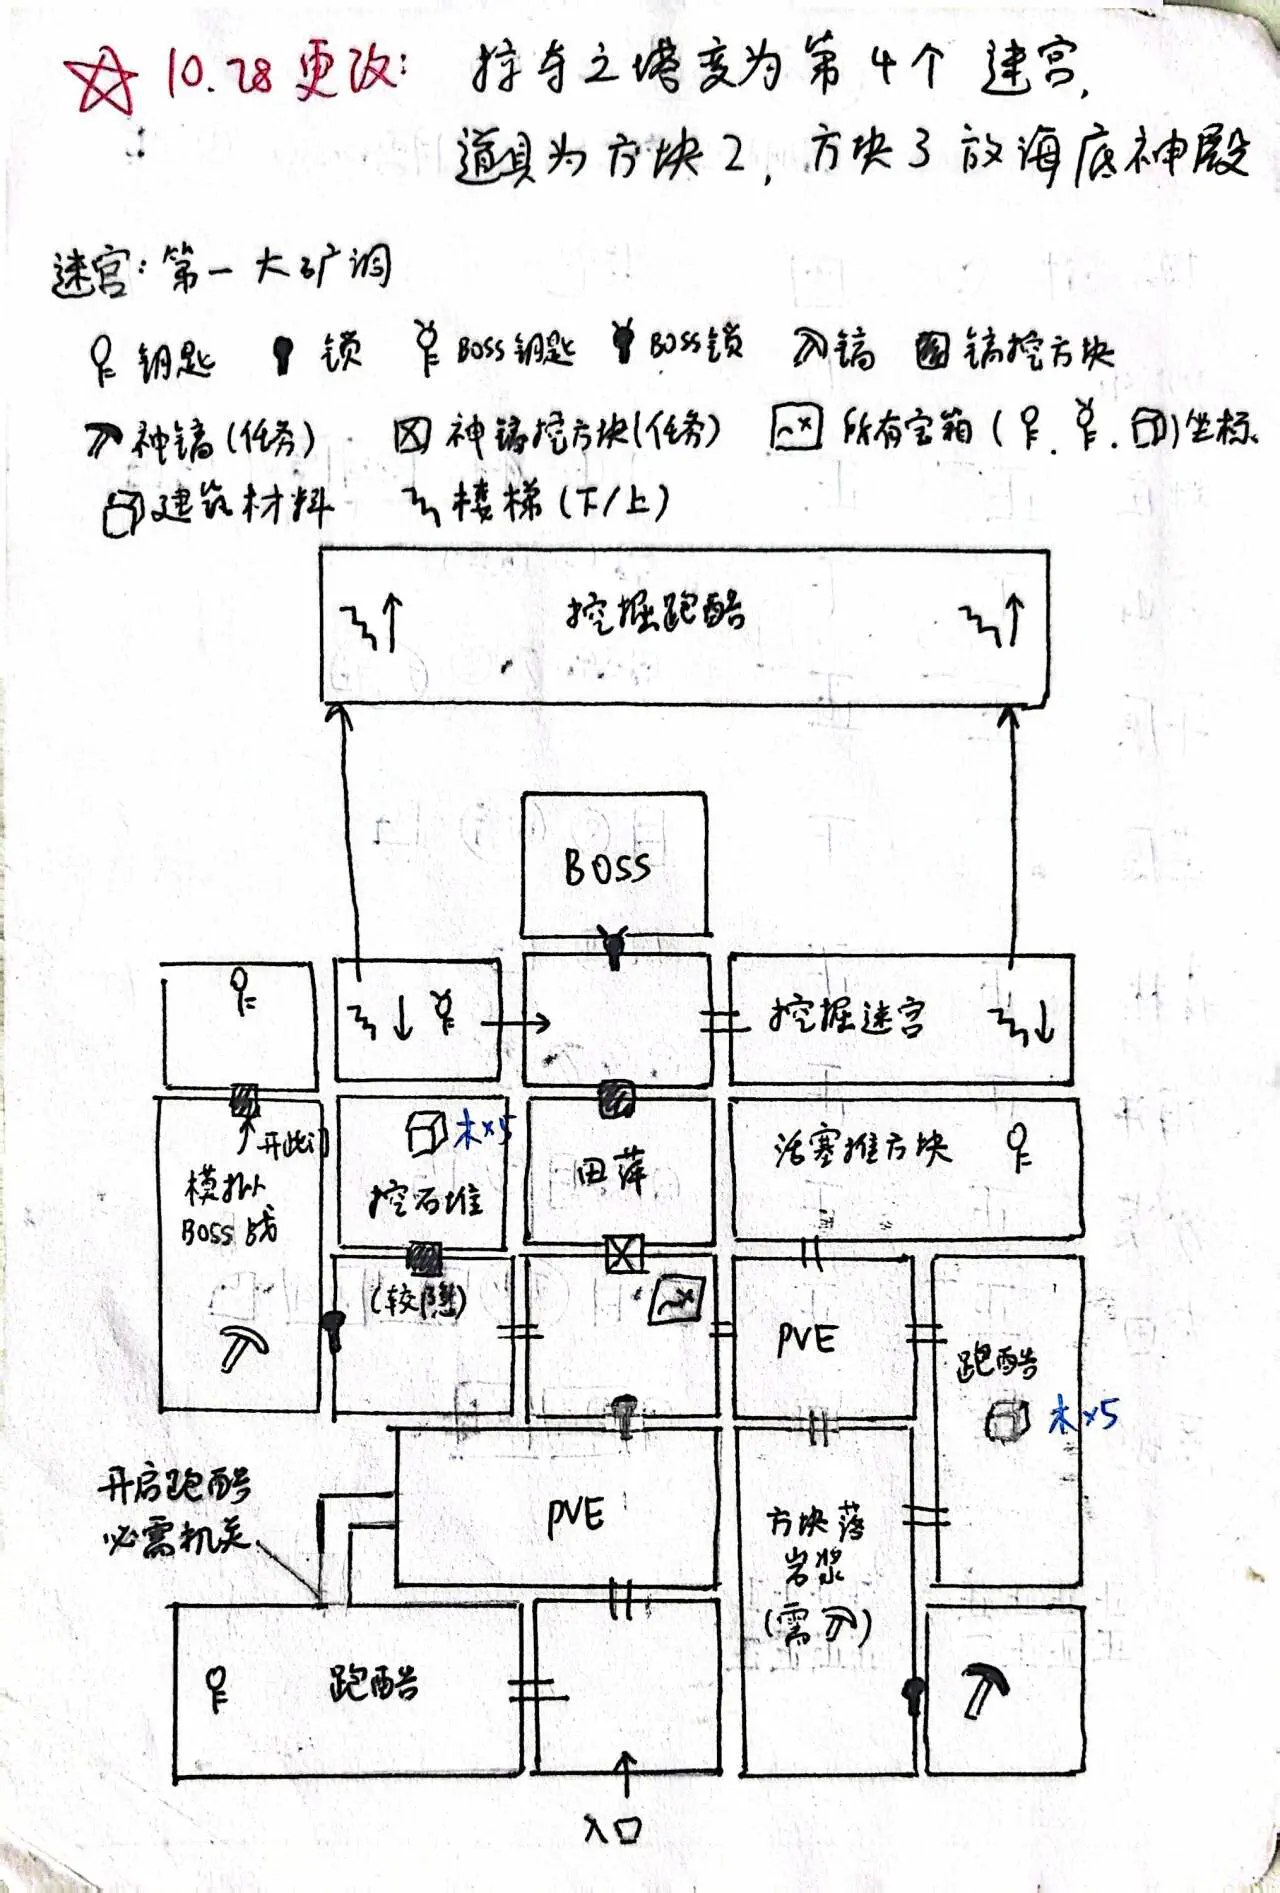 10.28更改: 掠夺之塔变为第4个迷宫,
道具为方块2, 方块3放海底神殿
迷宫: 第一大矿洞
钥匙 锁 BOSS钥匙 BOSS锁 镐 镐挖方块
神镐(任务) 神镐挖方块(任务) 所有宝箱( . . )坐标
建筑材料 楼梯(下/上)
挖掘跑酷
BOSS
挖掘迷宫
开此门
模拟
BOSS战
木×5
挖石堆
田萍
活塞推方块
(较隐)
PVE
跑酷
木×5
开启跑酷
必需机关
PVE
方块落
岩浆
(需 )
跑酷
入口